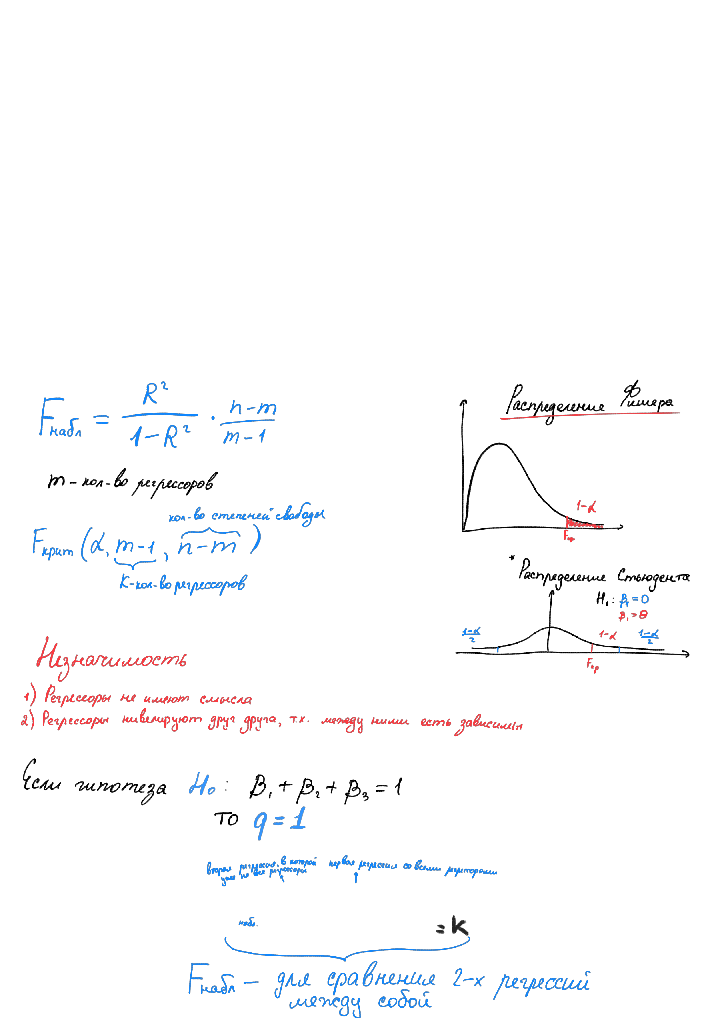 Fнабл = R² / 1-R² · n-m / m-1
m - кол-во регрессоров
кол-во степеней свободы
Fкрит (α, m-1, n-m)
K-кол-во регрессоров
Распределение Фишера
1-α
Fкр
* Распределение Стьюдента
H₁: β₁ = 0
β₁ > 0
1-α/2 1-α 1-α/2
Fкр
Незначимость
1) Регрессоры не имеют смысла
2) Регрессоры нивелируют друг друга, т.к. между ними есть зависим
Если гипотеза H₀: β₁ + β₂ + β₃ = 1
то q = 1
вторая регрессия, в которой первая регрессия со всеми
уже не все регрессоры
набл.
= K
Fнабл - для сравнения 2-х регрессий
между собой